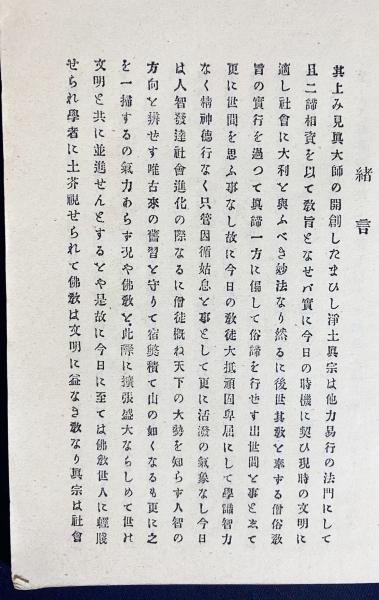 緒言
其上み見眞大師の開創したまひし淨土眞宗は他力易行の法門にして
且二諦相資を以て敎旨となせバ實に今日の時機に契ひ現時の文明に
適し社會に大利を與ふべき妙法なり然るに後世其敎を奉する僧俗敎
旨の實行を過つて眞諦一方に偏して俗諦を行せす出世間を事とゑて
更に世間を思ふ事なし故に今日の敎徒大抵頑固卑屈にして學識智力
なく精神德行なく只管因循姑息を事として更に活潑の氣象なし今日
は人智發達社會進化の際なるに僧徒概ね天下の大勢を知らす人智の
方向を辨せす唯古來の舊習を守りて宿弊積て山の如くなるも更に之
を一掃するの氣力あらす况や佛敎を此際に擴張盛大ならしめて世の
文明と共に並進せんとするとや是故に今日に至ては佛敎世人に輕賤
せられ學者に土芥視せられて佛敎は文明に益なき敎なり眞宗は社會